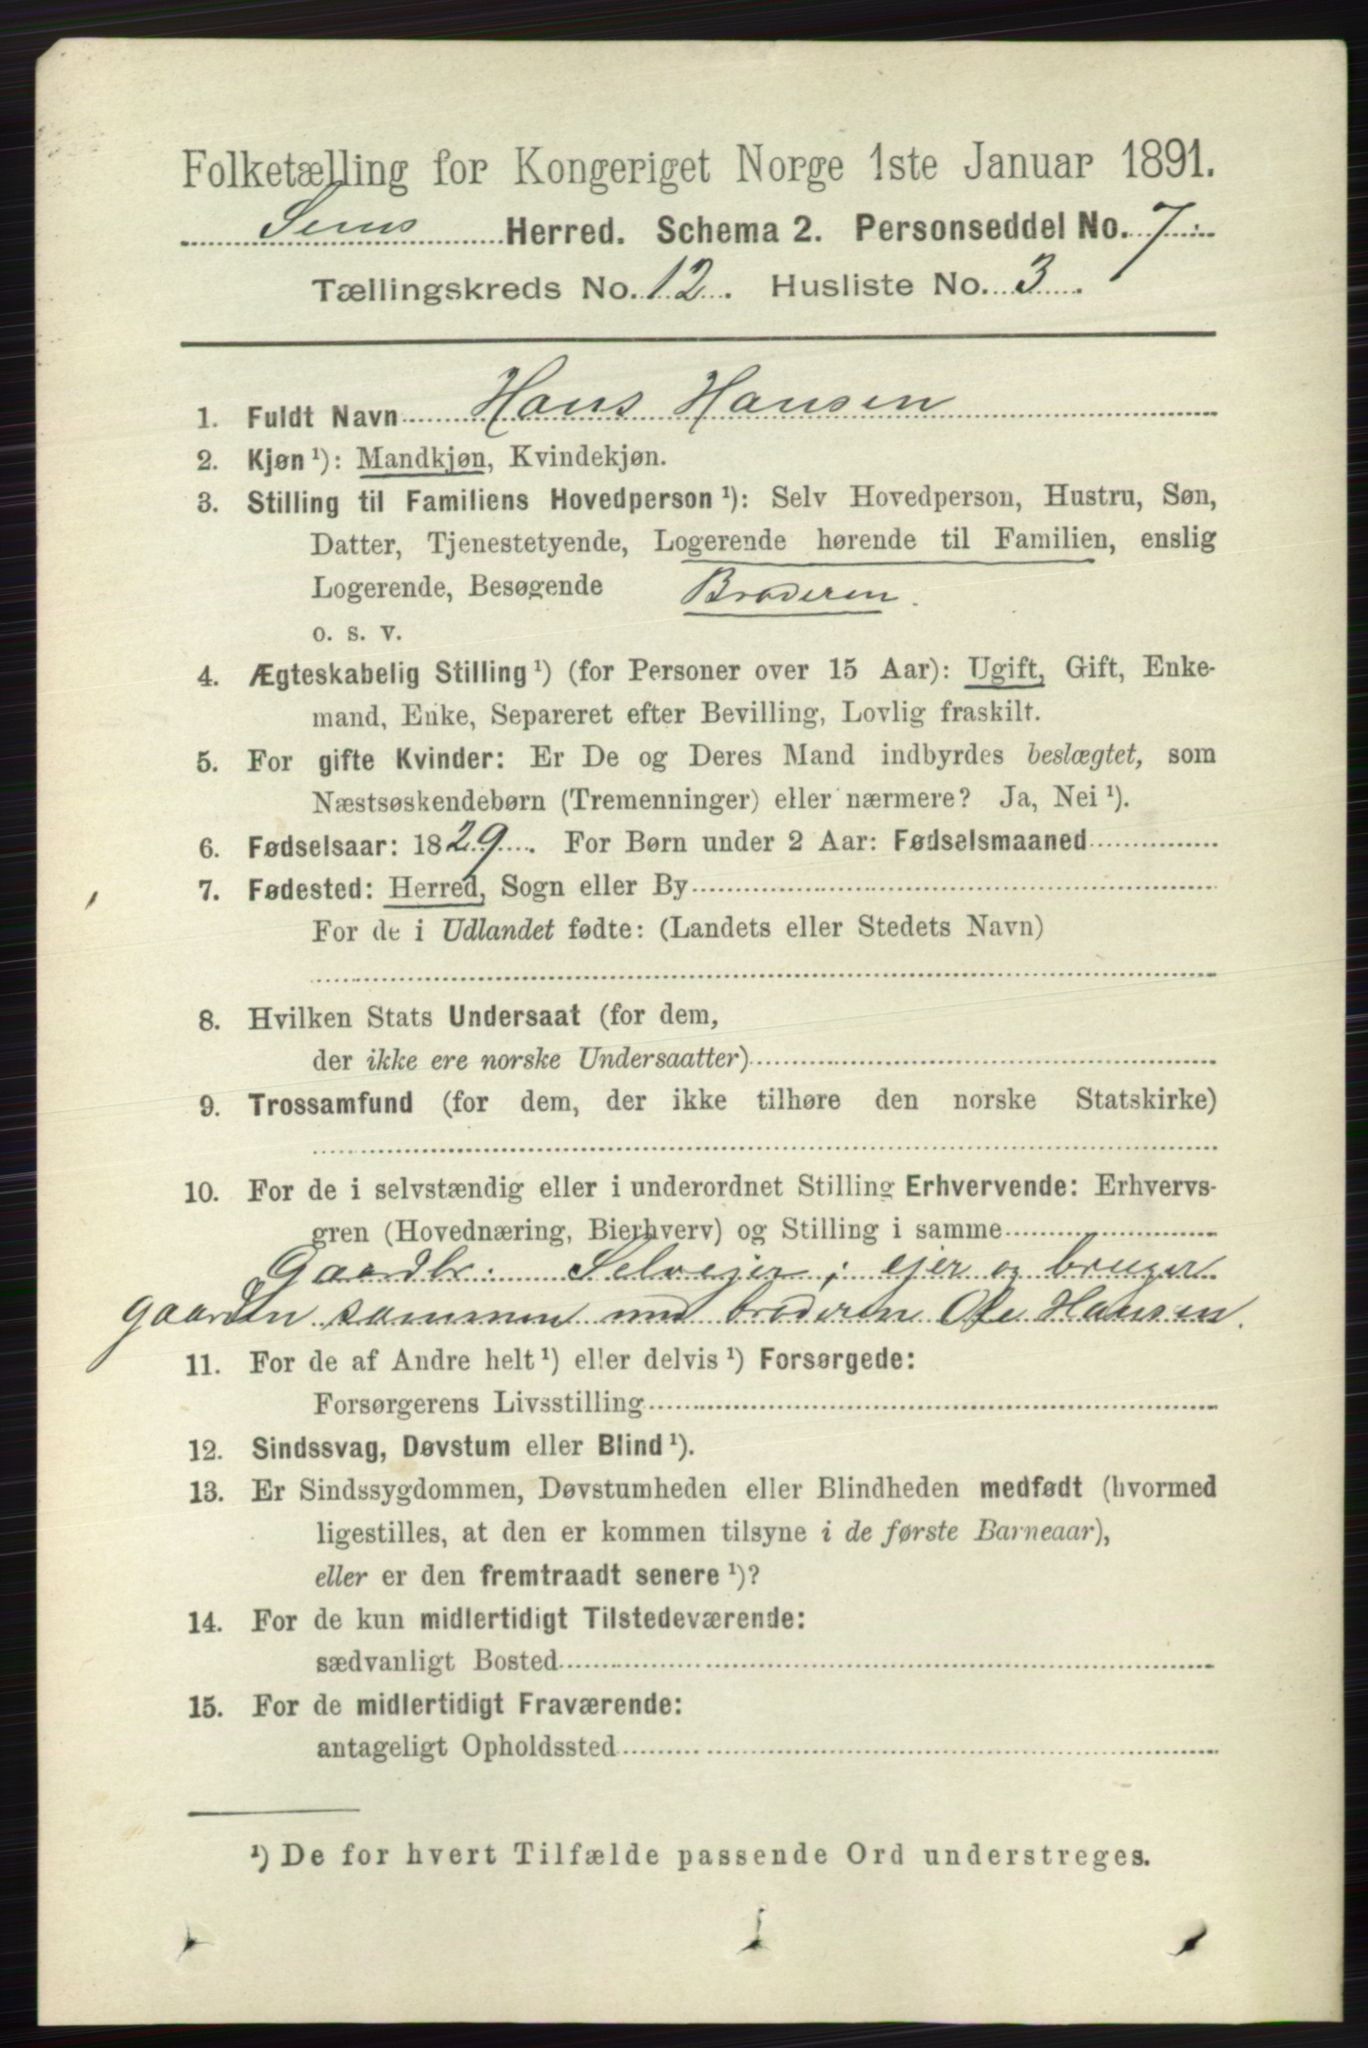 Folketælling for Kongeriget Norge 1ste Januar 1891.
Sems Herred. Schema 2. Personseddel No. 7.
Tællingskreds No. 12. Husliste No. 3.
1. Fuldt Navn Hans Hansen
2. Kjøn ¹): Mandkjøn, Kvindekjøn.
3. Stilling til Familiens Hovedperson ¹): Selv Hovedperson, Hustru, Søn,
Datter, Tjenestetyende, Logerende hørende til Familien, enslig
Logerende, Besøgende Broderen.
o. s. v.
4. Ægteskabelig Stilling ¹) (for Personer over 15 Aar): Ugift, Gift, Enke-
mand, Enke, Separeret efter Bevilling, Lovlig fraskilt.
5. For gifte Kvinder: Er De og Deres Mand indbyrdes beslægtet, som
Næstsøskendebørn (Tremenninger) eller nærmere? Ja, Nei ¹).
6. Fødselsaar: 1829. For Børn under 2 Aar: Fødselsmaaned
7. Fødested: Herred, Sogn eller By
For de i Udlandet fødte: (Landets eller Stedets Navn)
8. Hvilken Stats Undersaat (for dem,
der ikke ere norske Undersaatter)
9. Trossamfund (for dem, der ikke tilhøre den norske Statskirke)
10. For de i selvstændig eller i underordnet Stilling Erhvervende: Erhvervs-
gren (Hovednæring, Bierhverv) og Stilling i samme
Gaardbr. Selvejer; ejer og bruger
gaarden sammen med broderen Ole Hansen.
11. For de af Andre helt ¹) eller delvis ¹) Forsørgede:
Forsørgerens Livsstilling
12. Sindssvag, Døvstum eller Blind ¹).
13. Er Sindssygdommen, Døvstumheden eller Blindheden medfødt (hvormed
ligestilles, at den er kommen tilsyne i de første Barneaar),
eller er den fremtraadt senere ¹)?
14. For de kun midlertidigt Tilstedeværende:
sædvanligt Bosted
15. For de midlertidigt Fraværende:
antageligt Opholdssted
¹) De for hvert Tilfælde passende Ord understreges.